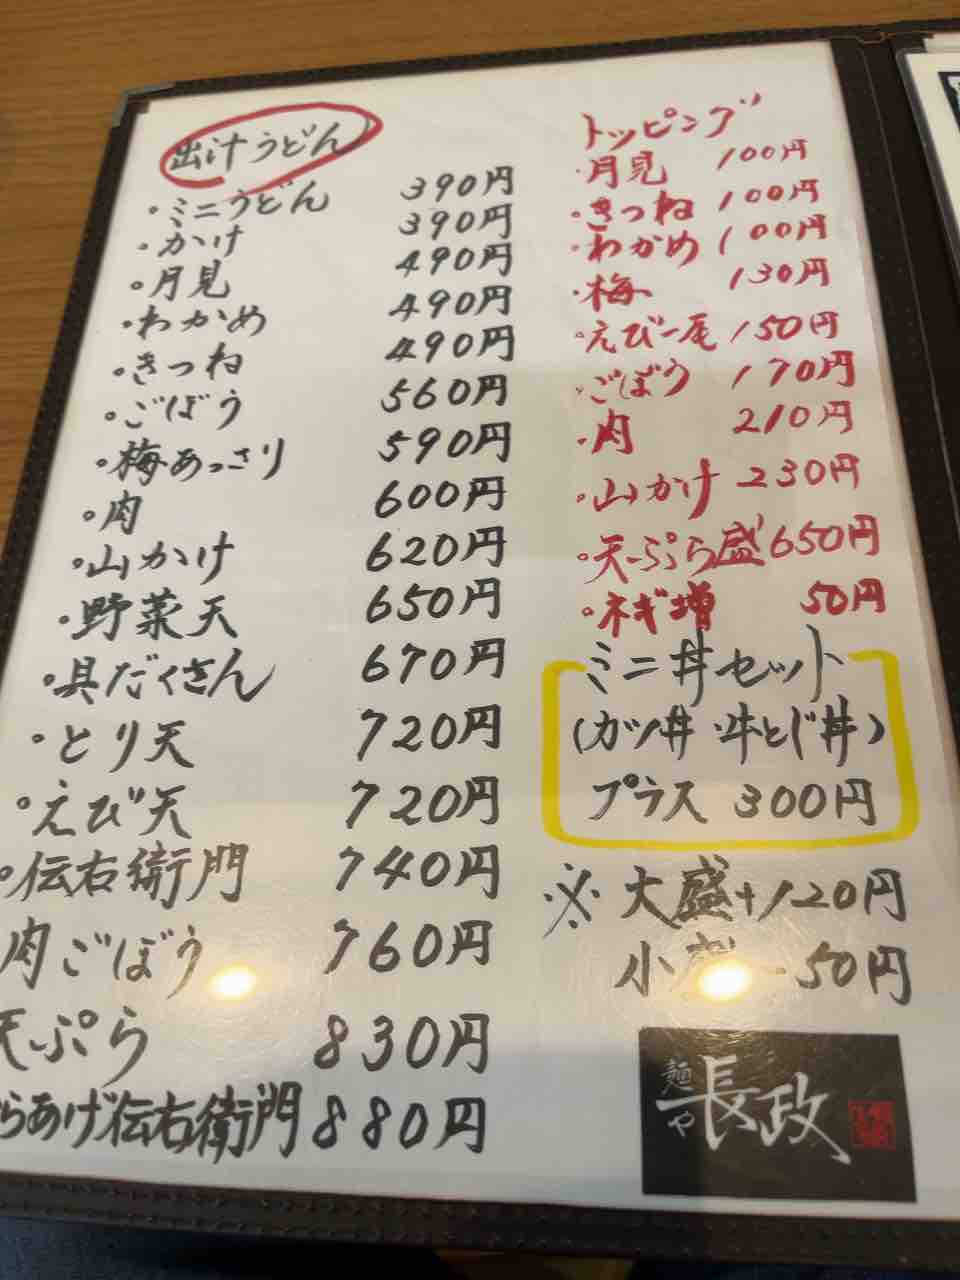 出汁うどん
・ミニうどん 390円
・かけ 390円
・月見 490円
・わかめ 490円
・きつね 490円
・ごぼう 560円
・梅あっさり 590円
・肉 600円
・山かけ 620円
・野菜天 650円
・具だくさん 670円
・とり天 720円
・えび天 720円
・伝右衛門 740円
肉ごぼう 760円
天ぷら 830円
らあげ伝右衛門 880円
トッピング
・月見 100円
・きつね 100円
・わかめ 100円
・梅 130円
・えび一尾 150円
・ごぼう 170円
・肉 210円
・山かけ 230円
・天ぷら盛 650円
・ネギ増 50円
ミニ丼セット
(カツ丼・牛とじ丼)
プラス 300円
※大盛+120円
小盛-50円
麺や 長政